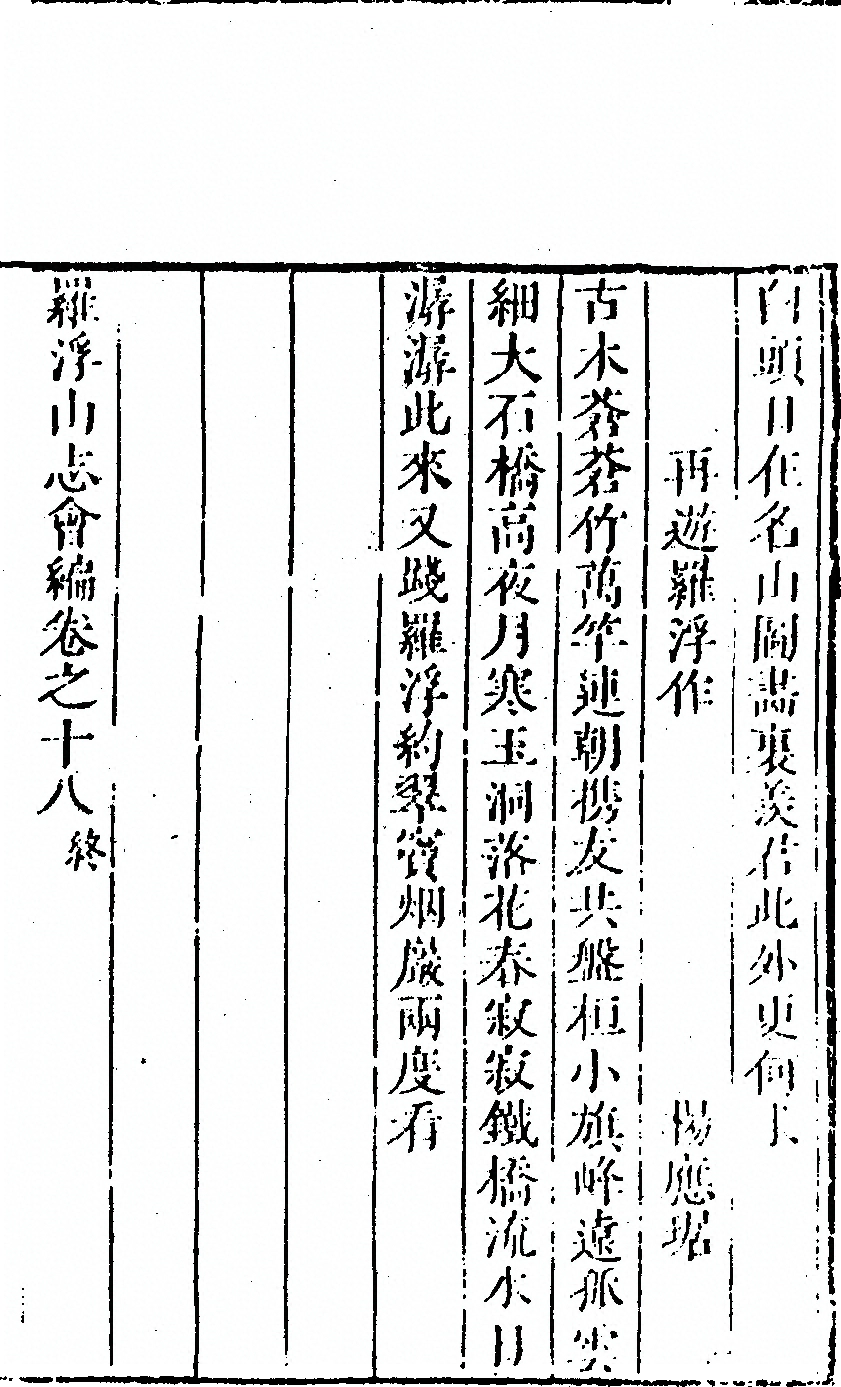 白頭日在名山圖畫裏羨君此外更何求
再遊羅浮作 楊應琚
古木蒼蒼竹萬竿連朝携友共盤桓小旗峰遠孤雲
細大石橋高夜月寒玉洞落花春寂寂鐵橋流水日
潺潺此來又踐羅浮約翠竇烟巖兩度看
羅浮山志會編卷之十八終